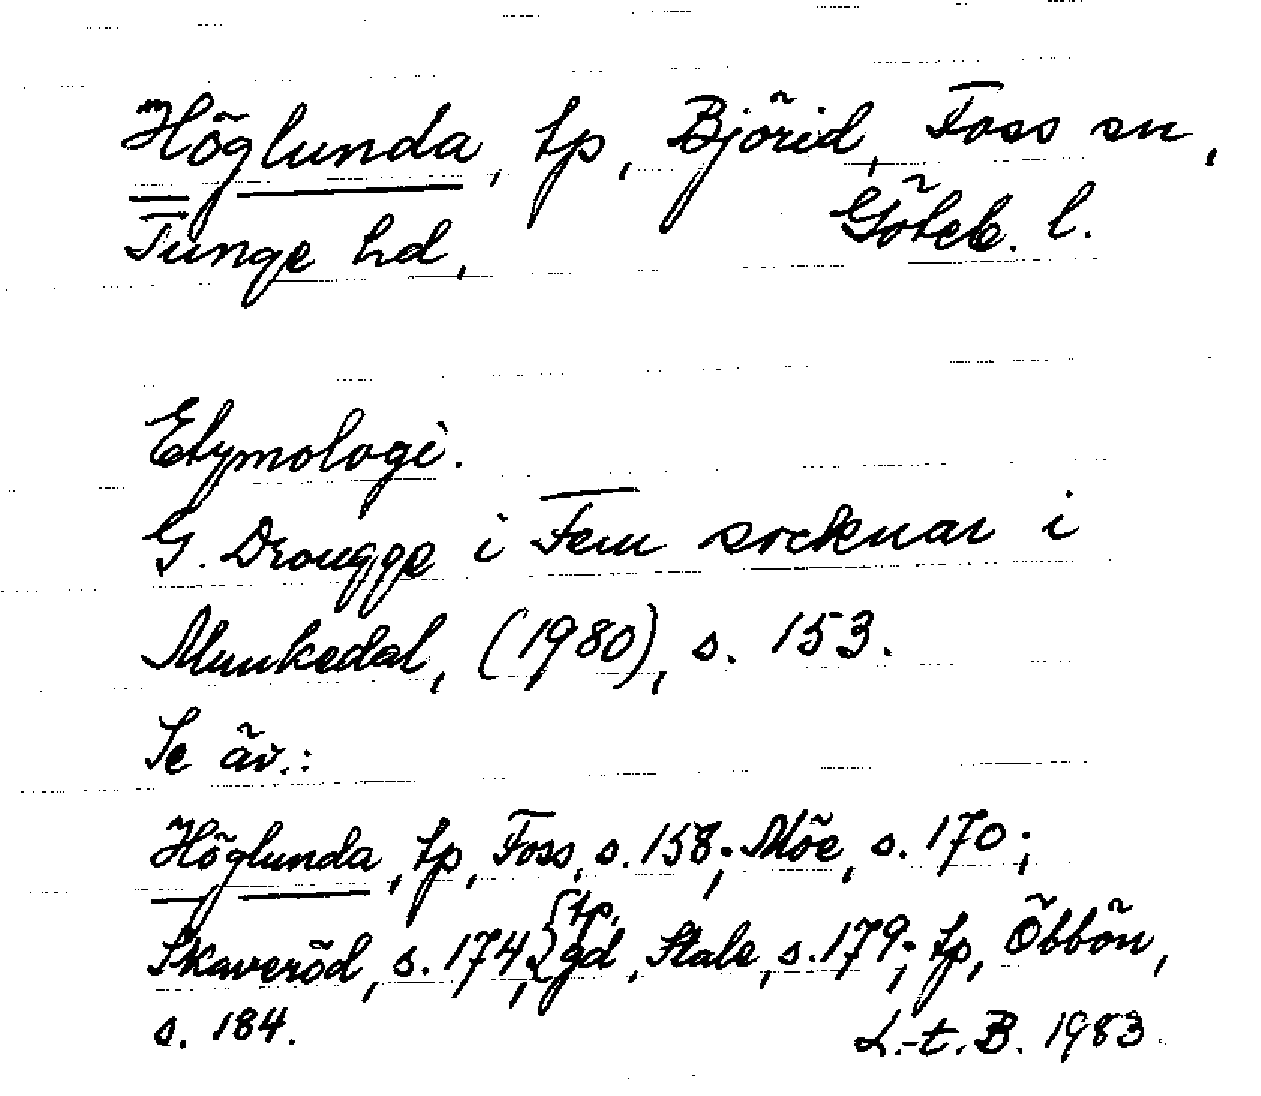 Höglunda, tp, Björid, Foss sn,
Tunge hd, Göteb. l.
Etymologi.
G. Drougge i Fem socknar i
Munkedal, (1980), s. 153.
Se äv.:
Höglunda, tp, Foss, s. 158; Möe, s. 170;
Skaveröd, s. 174; {tp, gd, Stale, s. 179; tp, Öbbön,
s. 184. L.-t. B. 1983.